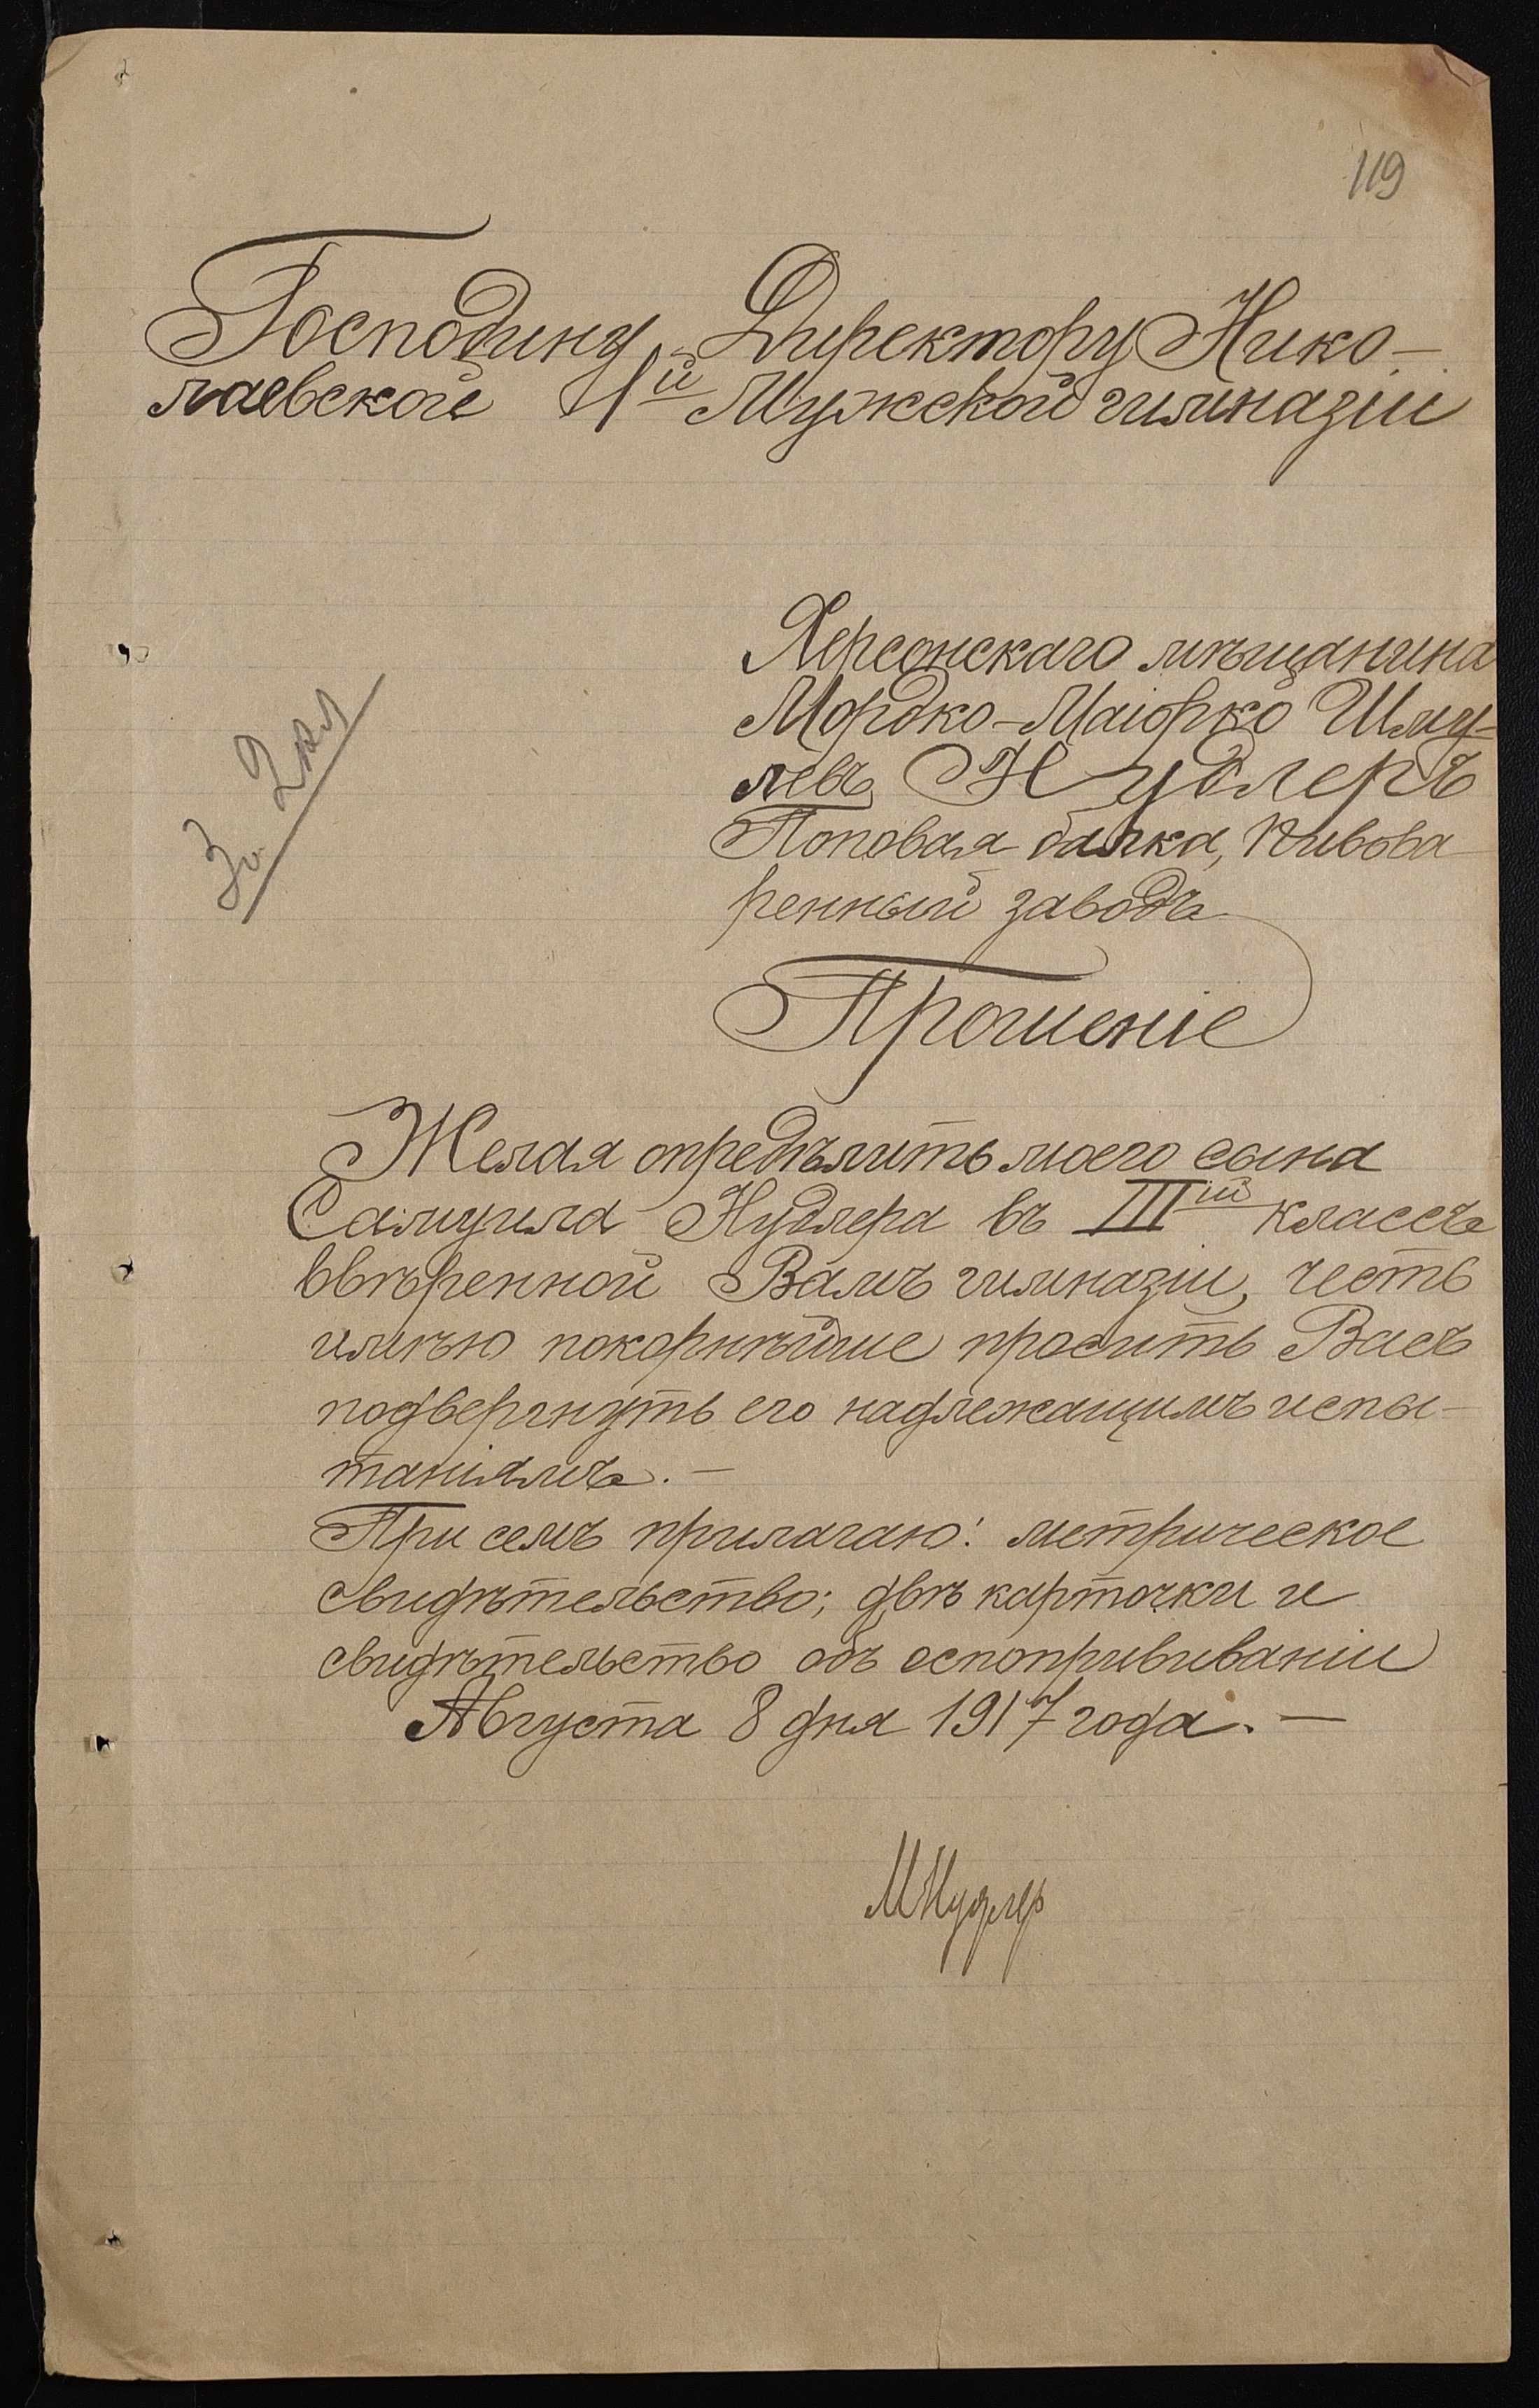 119
Господину Директору Нико-
лаевской 1й Мужской гимназіи
Херсонскаго мѣщанина
Мордко-Маіорко Шму-
левъ Нудлеръ
Поповая балка, Пивова
ренный заводъ
Прошеніе
Желая опредѣлить моего сына
Самуила Нудлера въ IIIій классъ
ввѣренной Вамъ гимназіи, честь
имѣю покорнѣйше просить Васъ
подвергнуть его надлежащимъ испы-
таніямъ. —
При семъ прилагаю: метрическое
свидѣтельство; двѣ карточки и
свидѣтельство объ оспопрививаніи
Августа 8 дня 1917 года. —
МНудлер